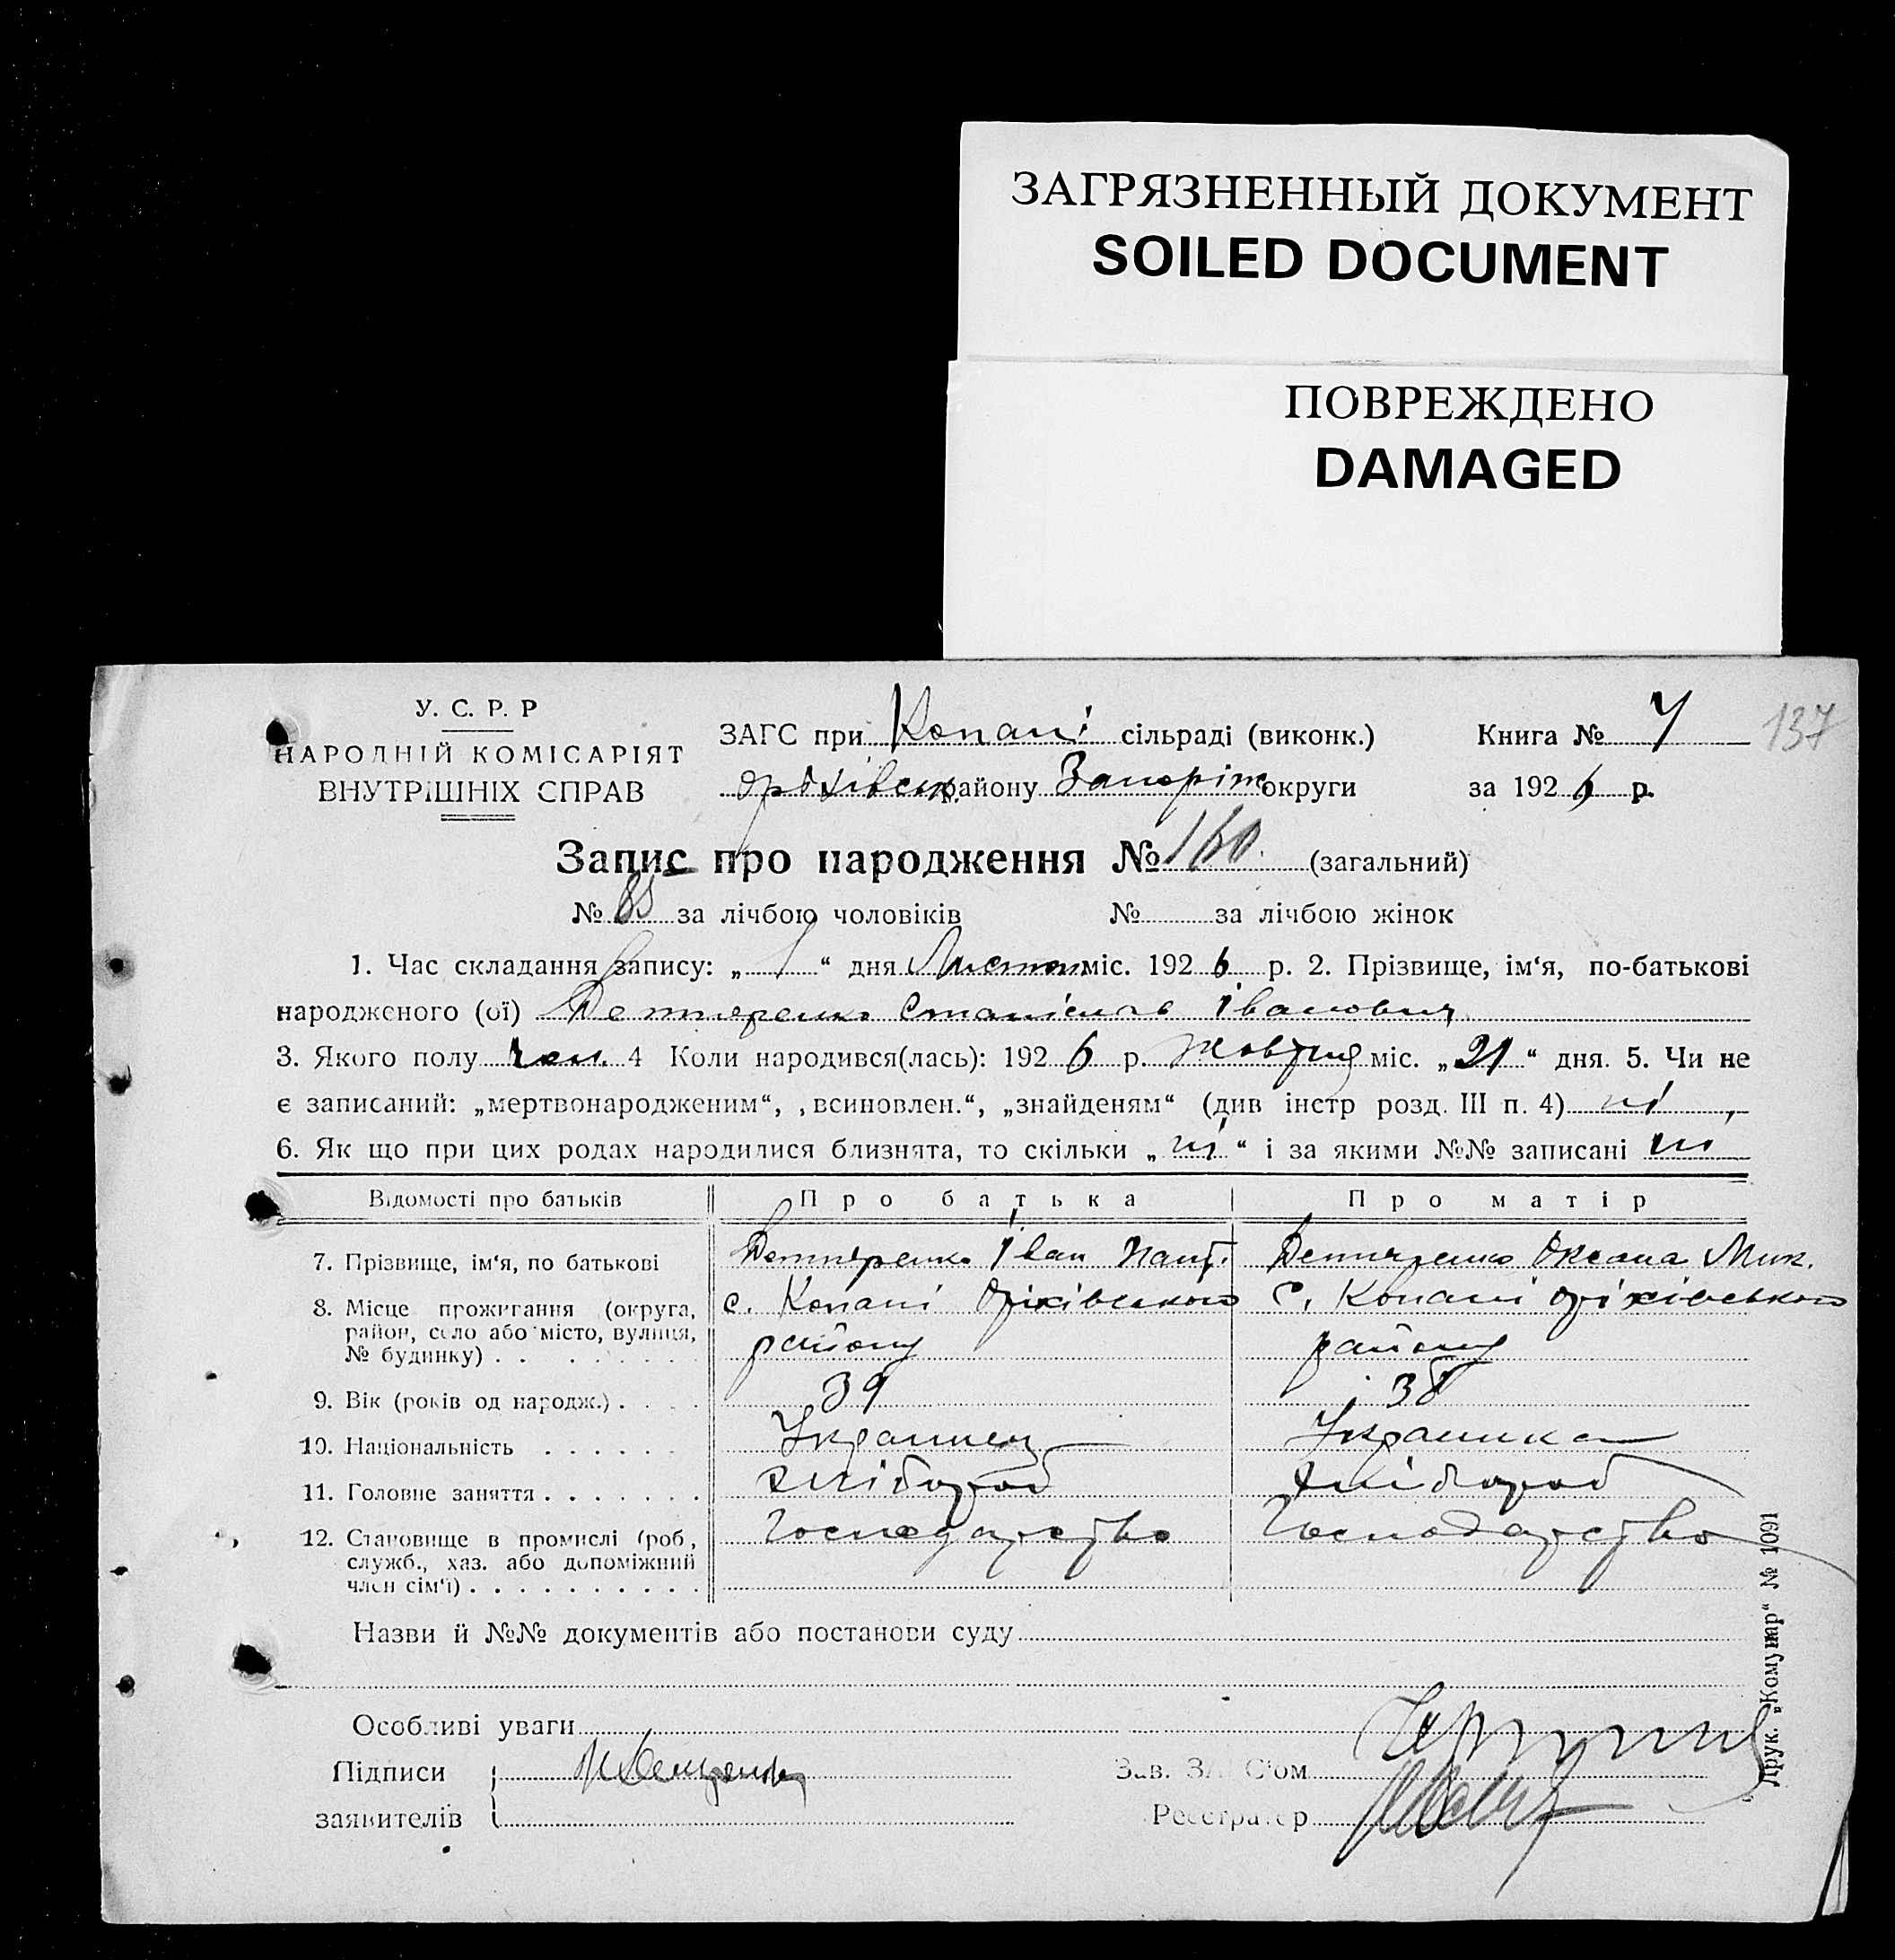 ЗАГРЯЗНЕННЫЙ ДОКУМЕНТ
SOILED DOCUMENT
ПОВРЕЖДЕНО
DAMAGED
У. С. Р. Р
НАРОДНІЙ КОМІСАРІЯТ
ВНУТРІШНІХ СПРАВ
ЗАГС при Копані сільраді (виконк.)
Оріхівськ. району Запоріж округи
Книга № 7
за 1926 р.
137
Запис про народження № 160 (загальний)
№ 85 за лічбою чоловіків № за лічбою жінок
1. Час складання запису: „ 1 “ дня Листоп міс. 1926 р. 2. Прізвище, ім‘я, по-батькові
народженого (ої) Станіслав Іванович
3. Якого полу чол. 4 Коли народився(лась): 1926 р. Жовтня міс. „21“ дня. 5. Чи не
є записаний: „мертвонародженим“, „всиновлен.“, „знайденям“ (див інстр розд. III п. 4) ні
6. Як що при цих родах народилися близнята, то скільки „ ні “ і за якими №№ записані ні
Відомості про батьків Про батька Про матір
7. Прізвище, ім‘я, по батькові Іван Оксана Мик.
8. Місце прожигання (округа, район, село або місто, вулиця, № будинку) . . с. Копані Оріхівського району С. Копані Оріхівського району
9. Вік (років од народж.) . . . . 39 38
10. Національність . . . . . Українец Українка
11. Головне заняття . . . . . . . хлібороб хлібороб
12. Становище в промислі (роб, служб., хаз. або допоміжний член сім‘ї) . . . . . . . . . . Господарство Господарство
Назви й №№ документів або постанови суду
Особливі уваги
Підписи
заявителів
Зав. ЗАГС‘ом
Реєстратор
Друк. „Комунар“ № 1091